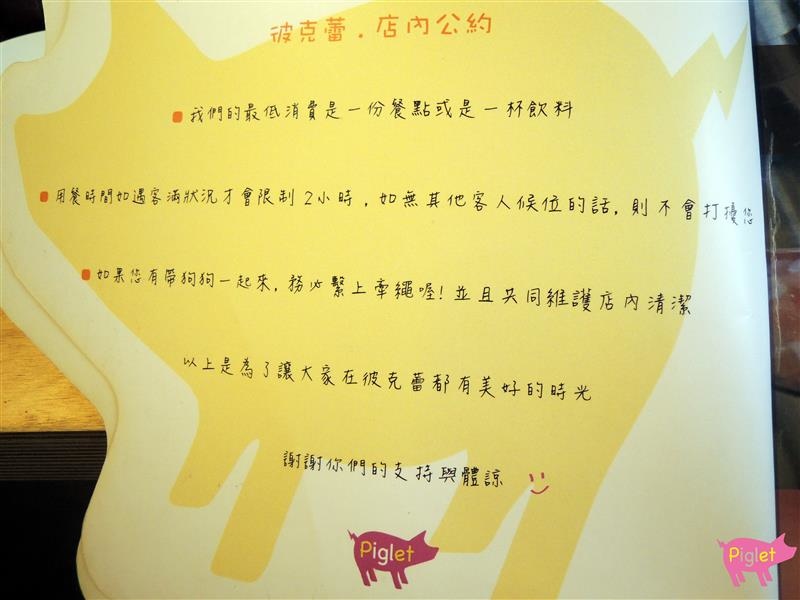 彼克蕾．店內公約
我們的最低消費是一份餐點或是一杯飲料
用餐時間如遇客滿狀況才會限制2小時，如無其他客人候位的話，則不會打擾您
如果您有帶狗狗一起來，務必繫上牽繩喔！並且共同維護店內清潔
以上是為了讓大家在彼克蕾都有美好的時光
謝謝你們的支持與體諒
Piglet
Piglet